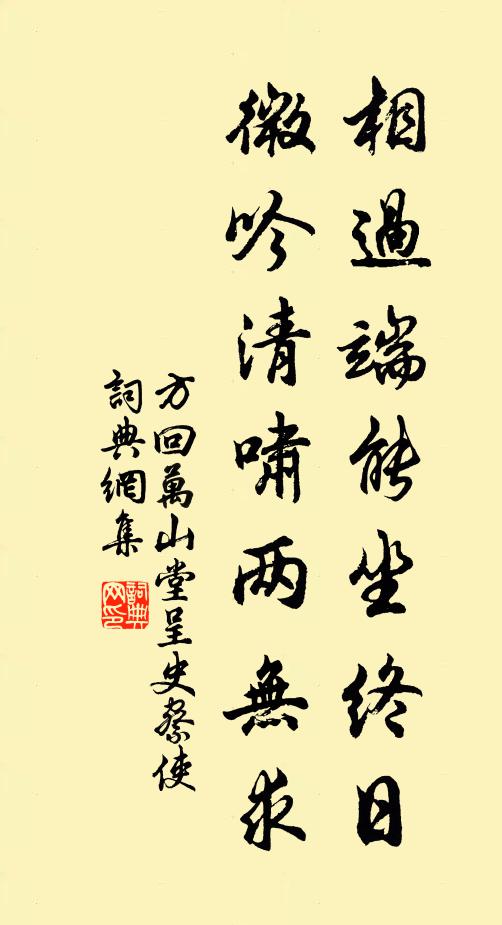 相過端能坐終日
微吟清嘯兩無求
方回萬山堂呈史察使
詞典網集
詞典网印